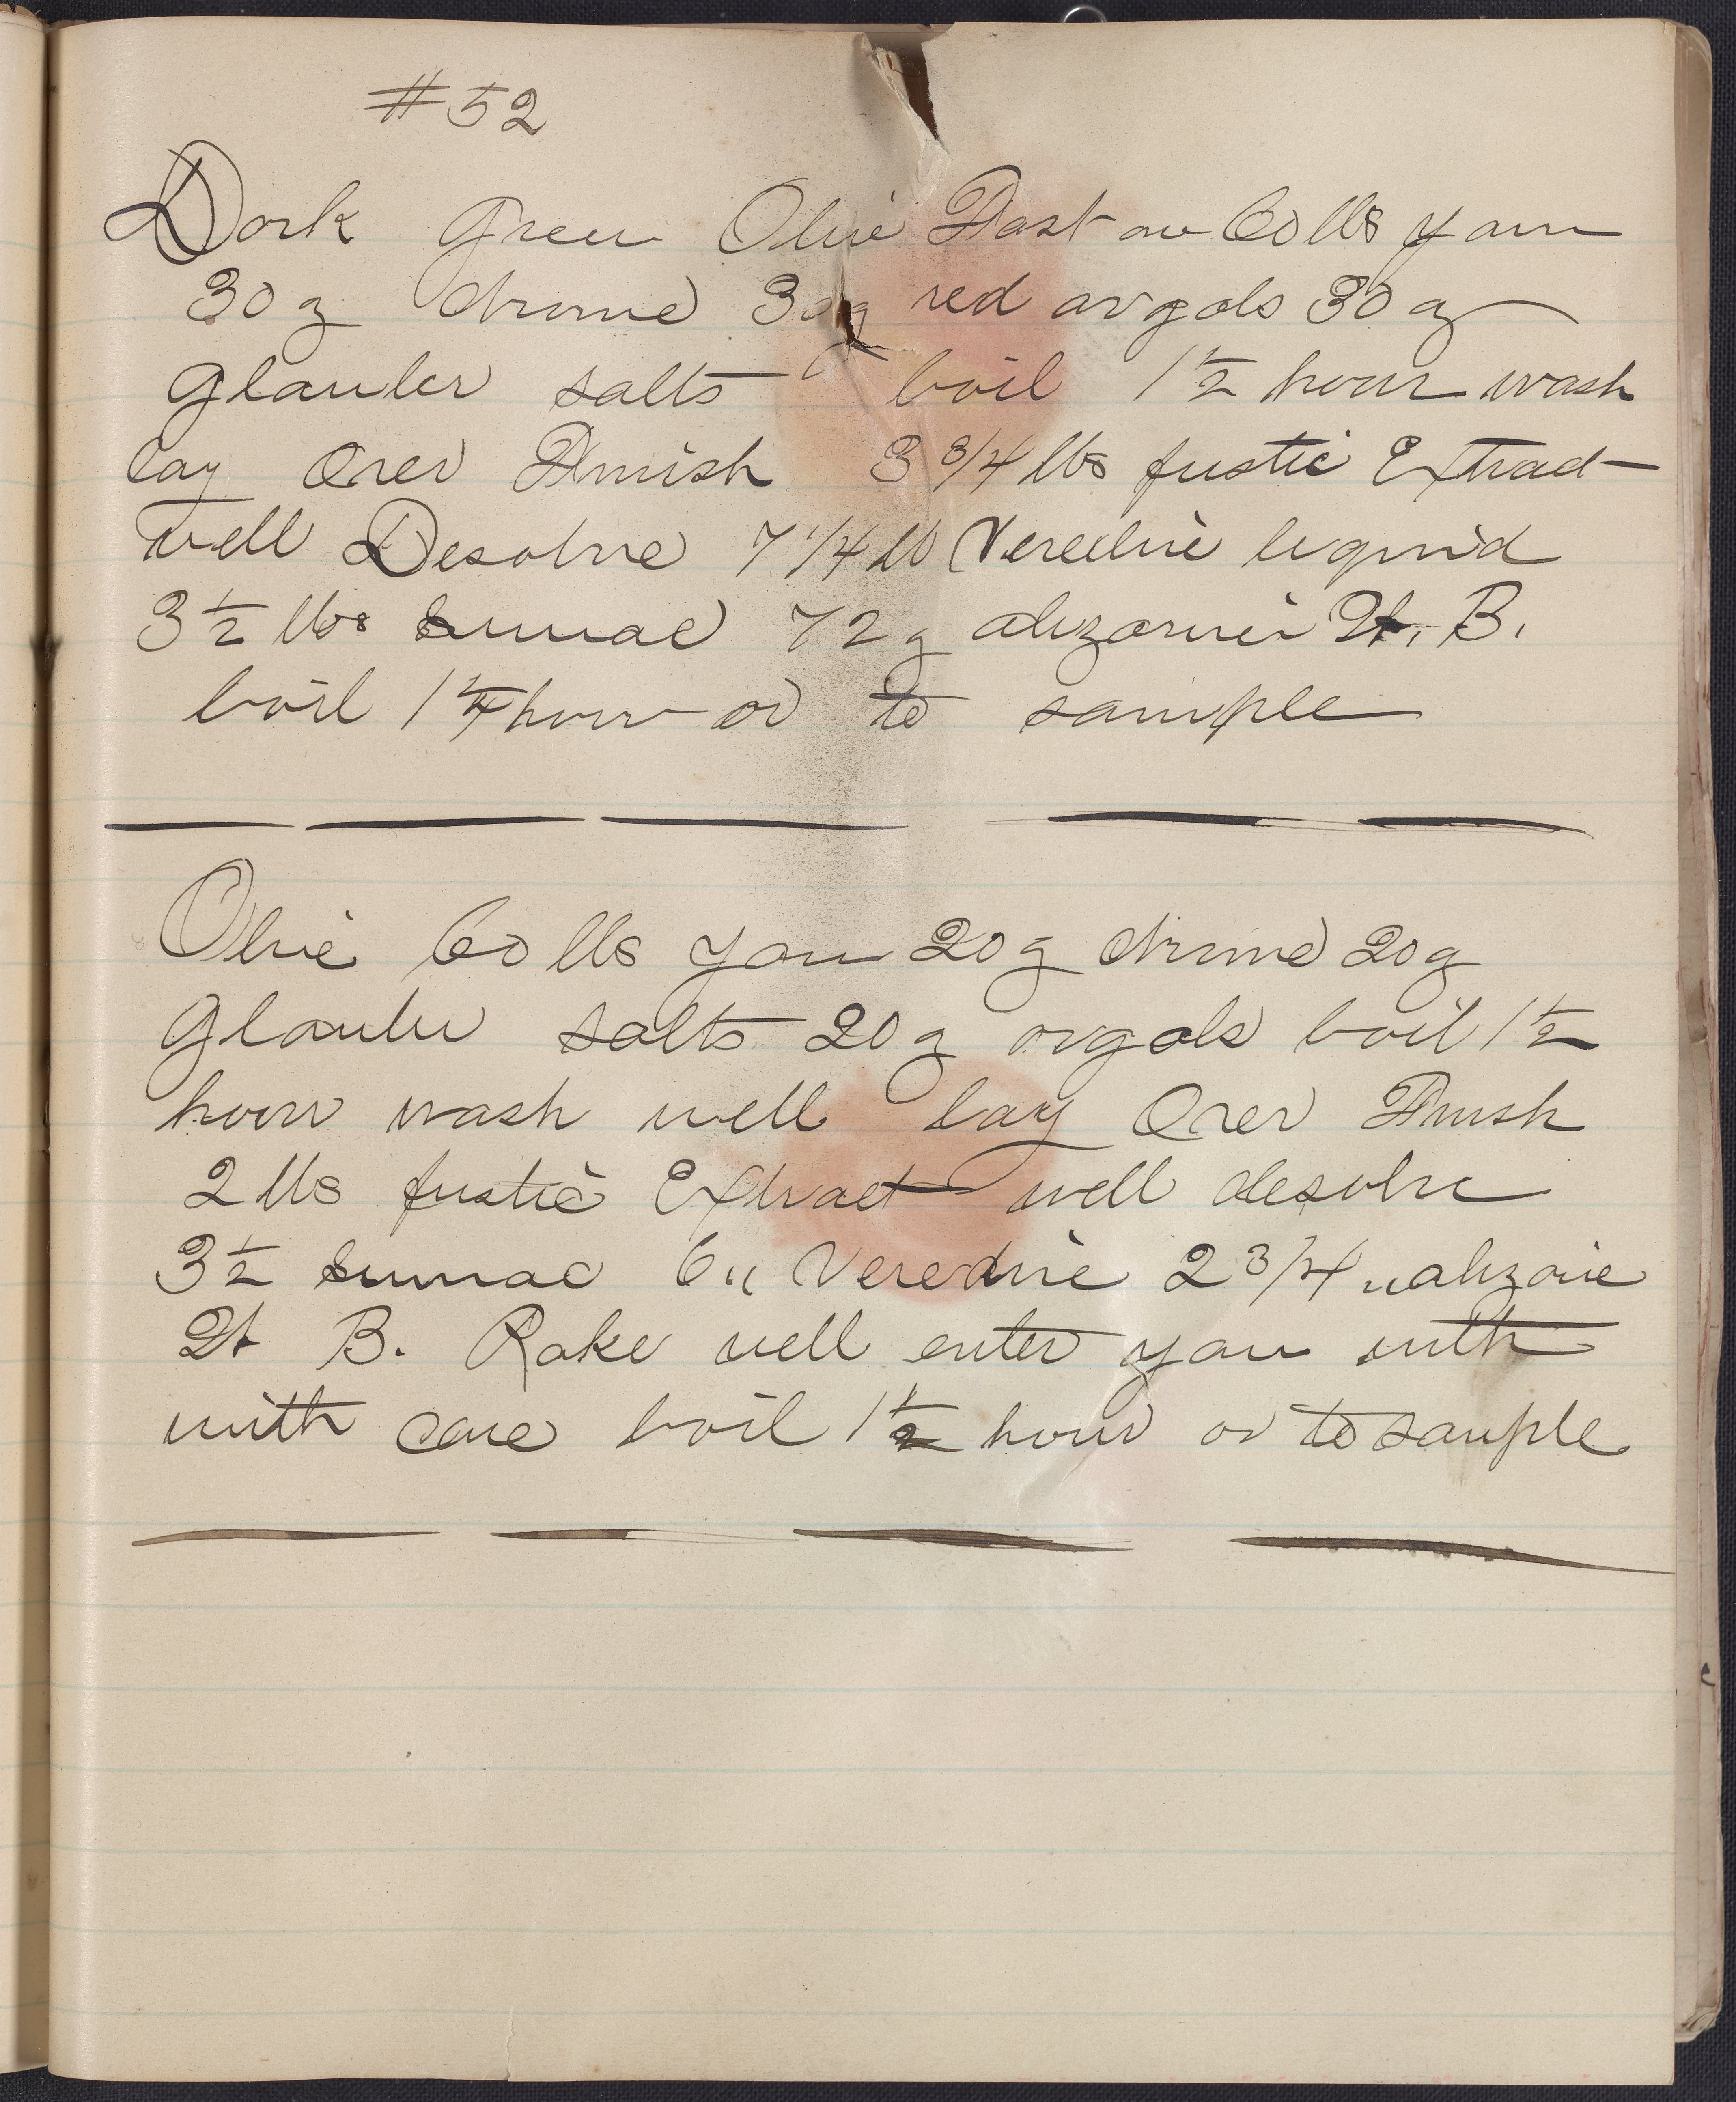 #52
Dark Green Olive Fast on 60 lbs yarn
30 z chrome 30 z red argols 30 z
glauber salts boil 1 1/2 hour wash
lay over Finish 3 3/4 lbs fustic Extract
well Desolve 7 1/4 lb Veredine liquid
3 1/2 lbs sumac 72 z alizarine W. B.
boil 1 1/4 hour or to sample
Olive 60 lbs yarn 20 z chrome 20 z
glauber salts 20 z argols boil 1 1/2
hour wash well lay over Finish
2 lbs fustic Extract well desolve
3 1/2 sumac 6 " Veredine 2 3/4 " alizarie
B. Rake well enter yarn with
with care boil 1 1/2 hour or to sample